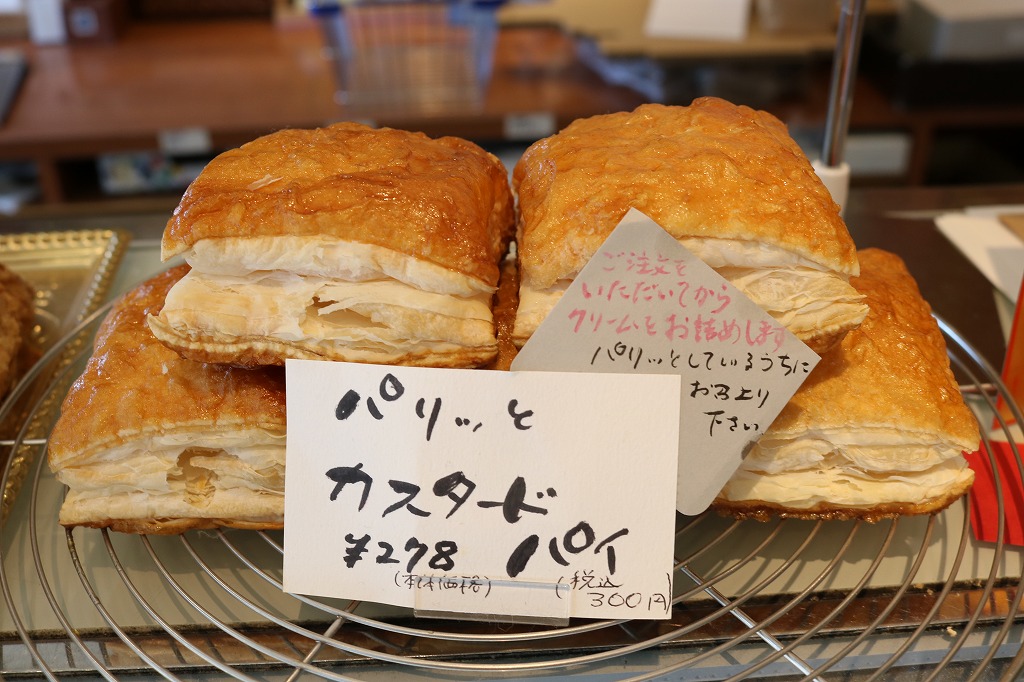 ご注文を
いただいてから
クリームをお詰めします
パリッとしているうちに
お召上り
下さい。
パリッと
カスタード
¥278 パイ
(本体価格) (税込
300円)